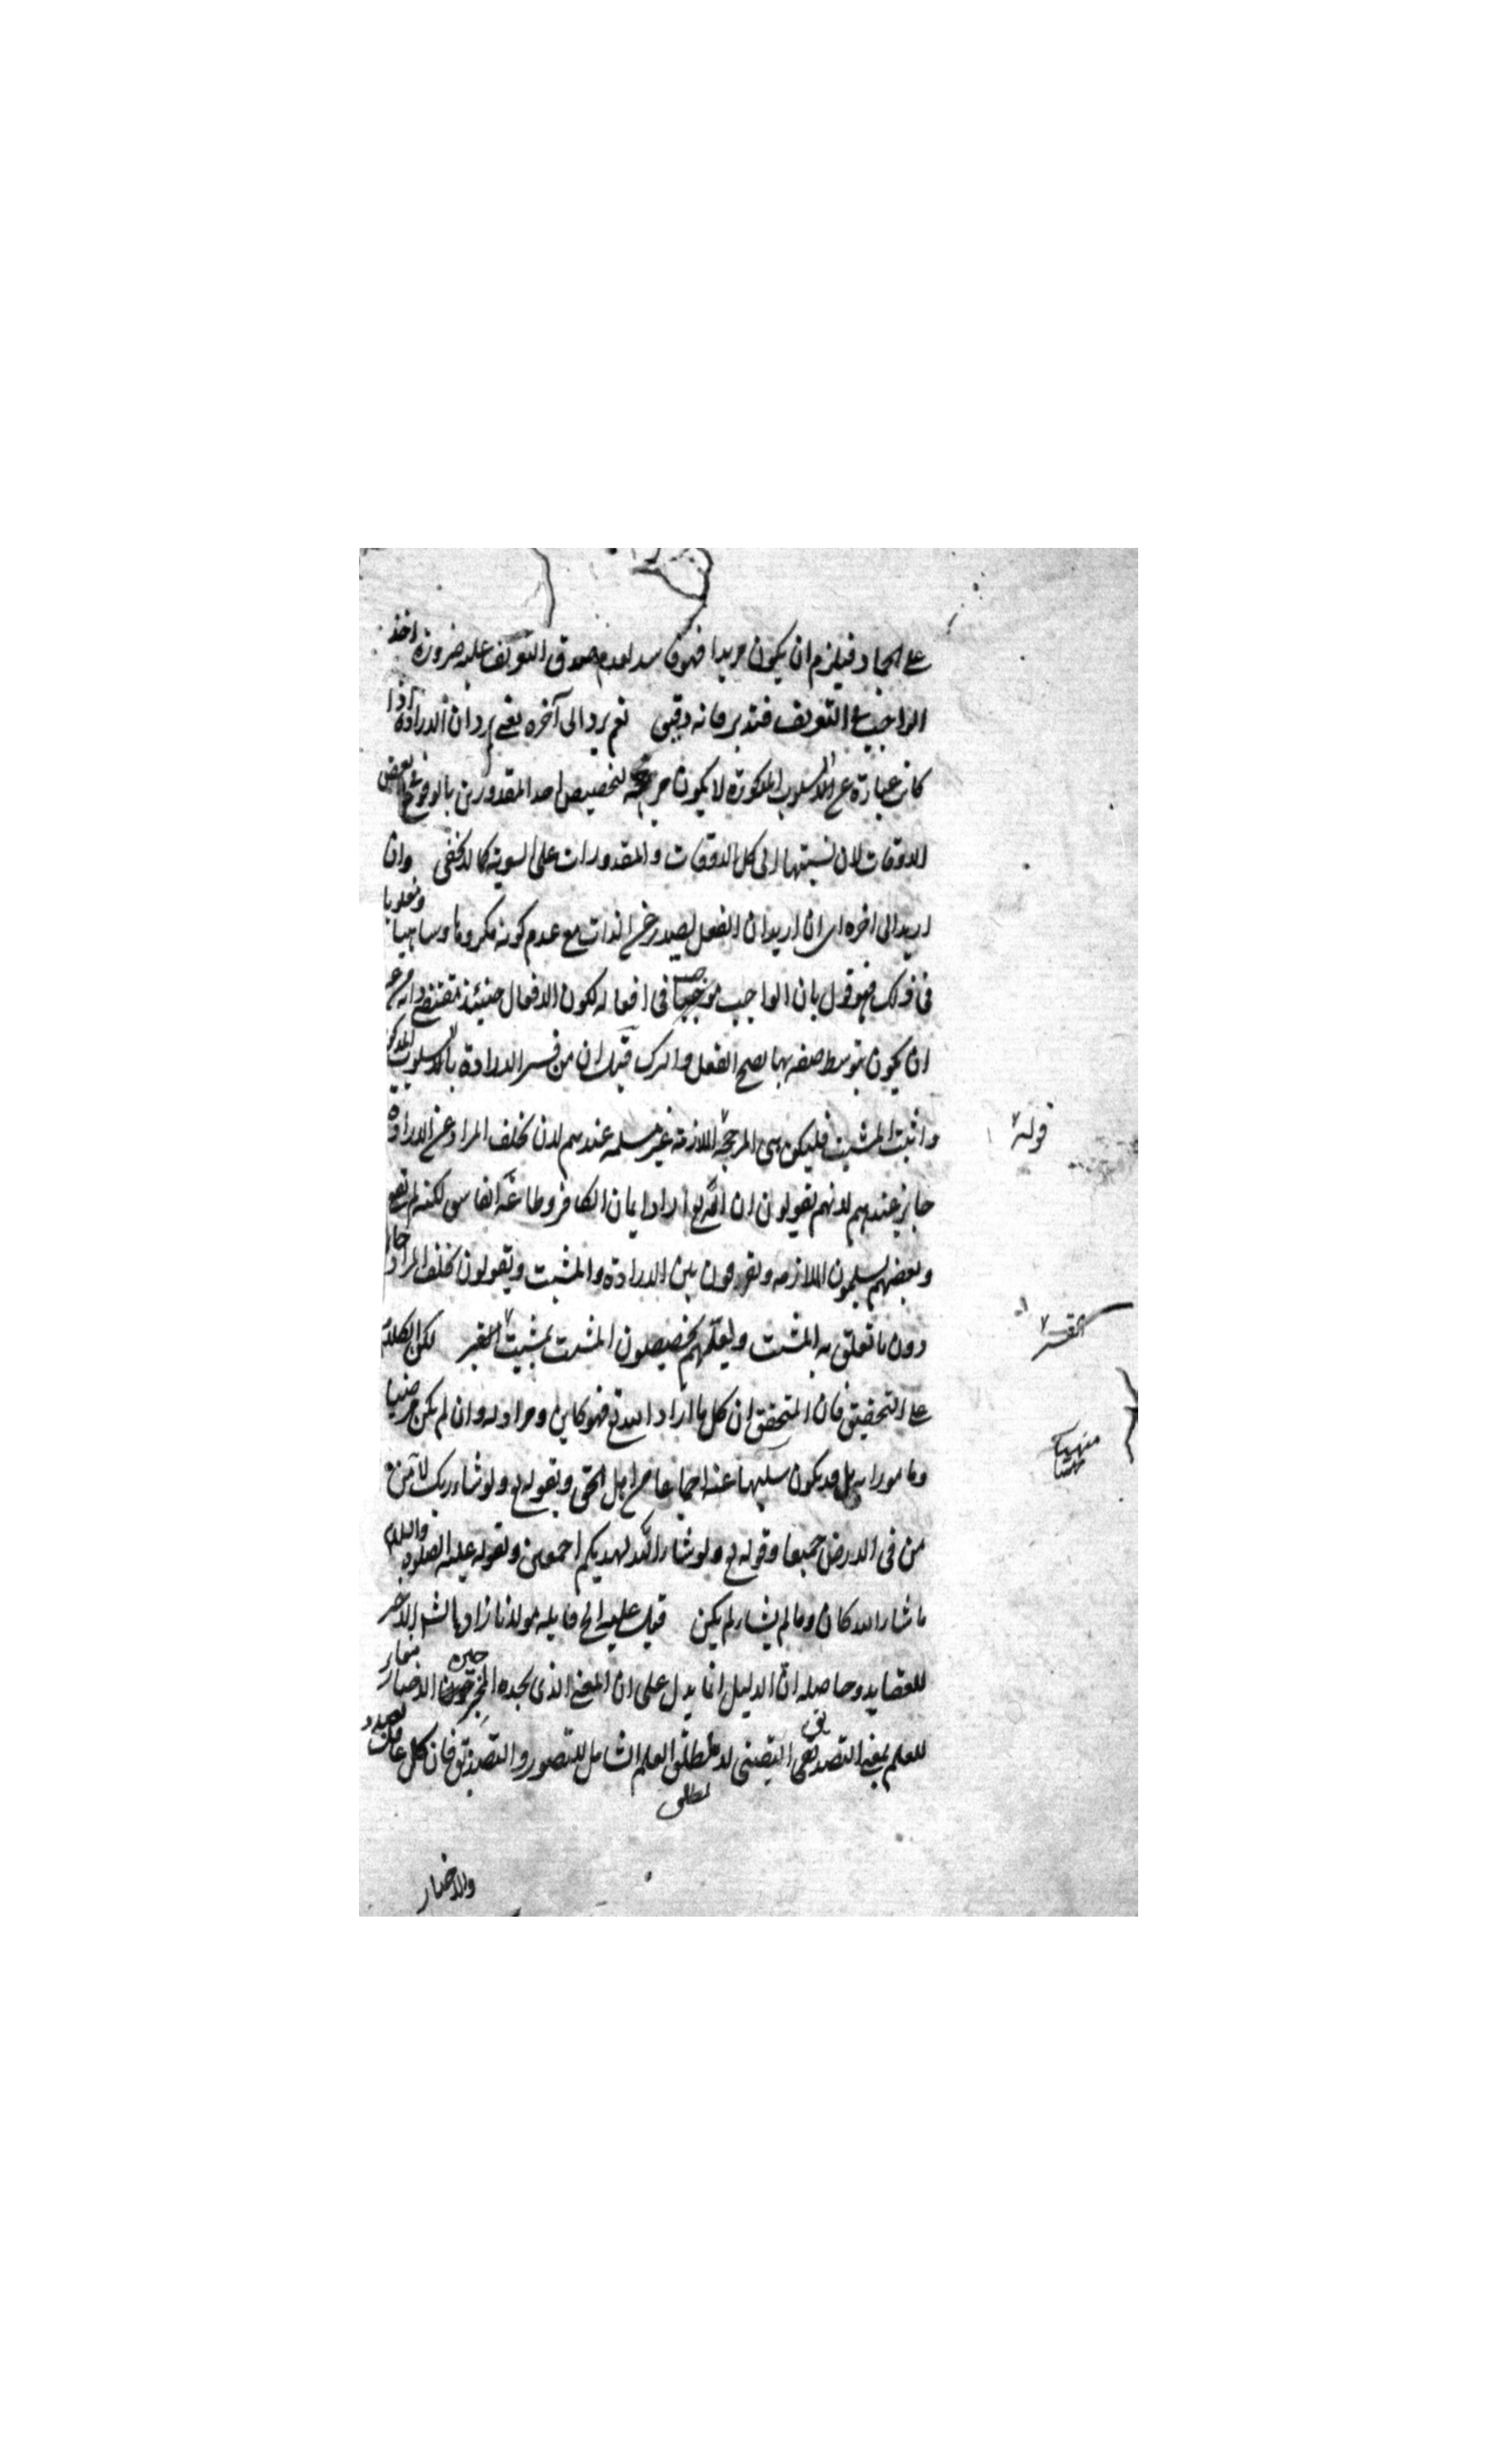 على الجماد فيلزم ان يكون مريدا فهو فاسد لعدم صدق التعريف عليه ضرورة اخذ
الواجب في التعريف فتدبر فانه دقيق نعم يرد الى آخره يعني يرد ان الارادة اذا
كان عبارة عن السلوب المذكورة لا يكون مرجحة لتخصيص احد المقدورين بالوقوع في بعض
الاوقات لان نسبتها الى كل الاوقات والمقدورات على السوية كما لا يخفى وان
اريد الى اخره اي ان اريد ان الفعل يصدر عن الذات مع عدم كونه مكروها وساهيا ومغلوبا
في ذلك فهو قول بان الواجب موجبا في افعاله لكون الافعال حينئذ مقتضى ذاته من غير
ان يكون بتوسط صفة بها يصح الفعل والترك قيل ان من فسر الارادة بالسلوب المذكور
واثبت المشيت فليكن هي المرجحة الملازمة غير مسلمة عندهم لان تخلف المراد عن الارادة
جايز عندهم لانهم يقولون ان الله تع اراد ايمان الكافر وطاعة الفاسق لكنه لم يقع
وبعضهم يسلمون الملازمه ويفرقون بين الارادة والمشيت ويقولون تخلف المراد جايز
دون ما تعلق به المشيت ولعلهم يخصصون المشيت بمشيت القسر لكن الكلام
على التحقيق فان المتحقق ان كل ما اراد الله تع فهو كاين ومراد له وان لم يكن مرضيا
ومامورا به بل قد يكون منهيا عنه اجماعا من اهل الحق وبقوله تع ولو شاء ربك لآمن
من في الارض جميعا وقوله تع ولو شاء الله لهديكم اجمعين وبقوله عليه الصلوة والسلام
ما شاء الله كان وما لم يشاء لم يكن قيل عليه الخ قايله مولانا زاده الشارح
للعقايد وحاصله ان الدليل انما يدل على ان المعنى الذي يجده المخبر حين الاخبار مغاير
للعلم بمعنى التصديق اليقيني لا لمطلق العلم الشامل للتصور والتصديق فان كل عاقل تصدد
لمطلق
والاخبار
قوله
القسر
منهيا